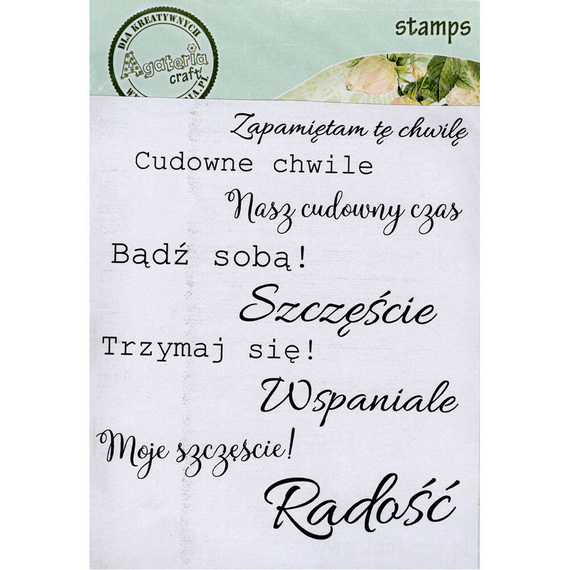 DLA KREATYWNYCH
Agateria
craft
stamps
Zapamiętam tę chwilę
Cudowne chwile
Nasz cudowny czas
Bądź sobą!
Szczęście
Trzymaj się!
Wspaniale
Moje szczęście!
Radość